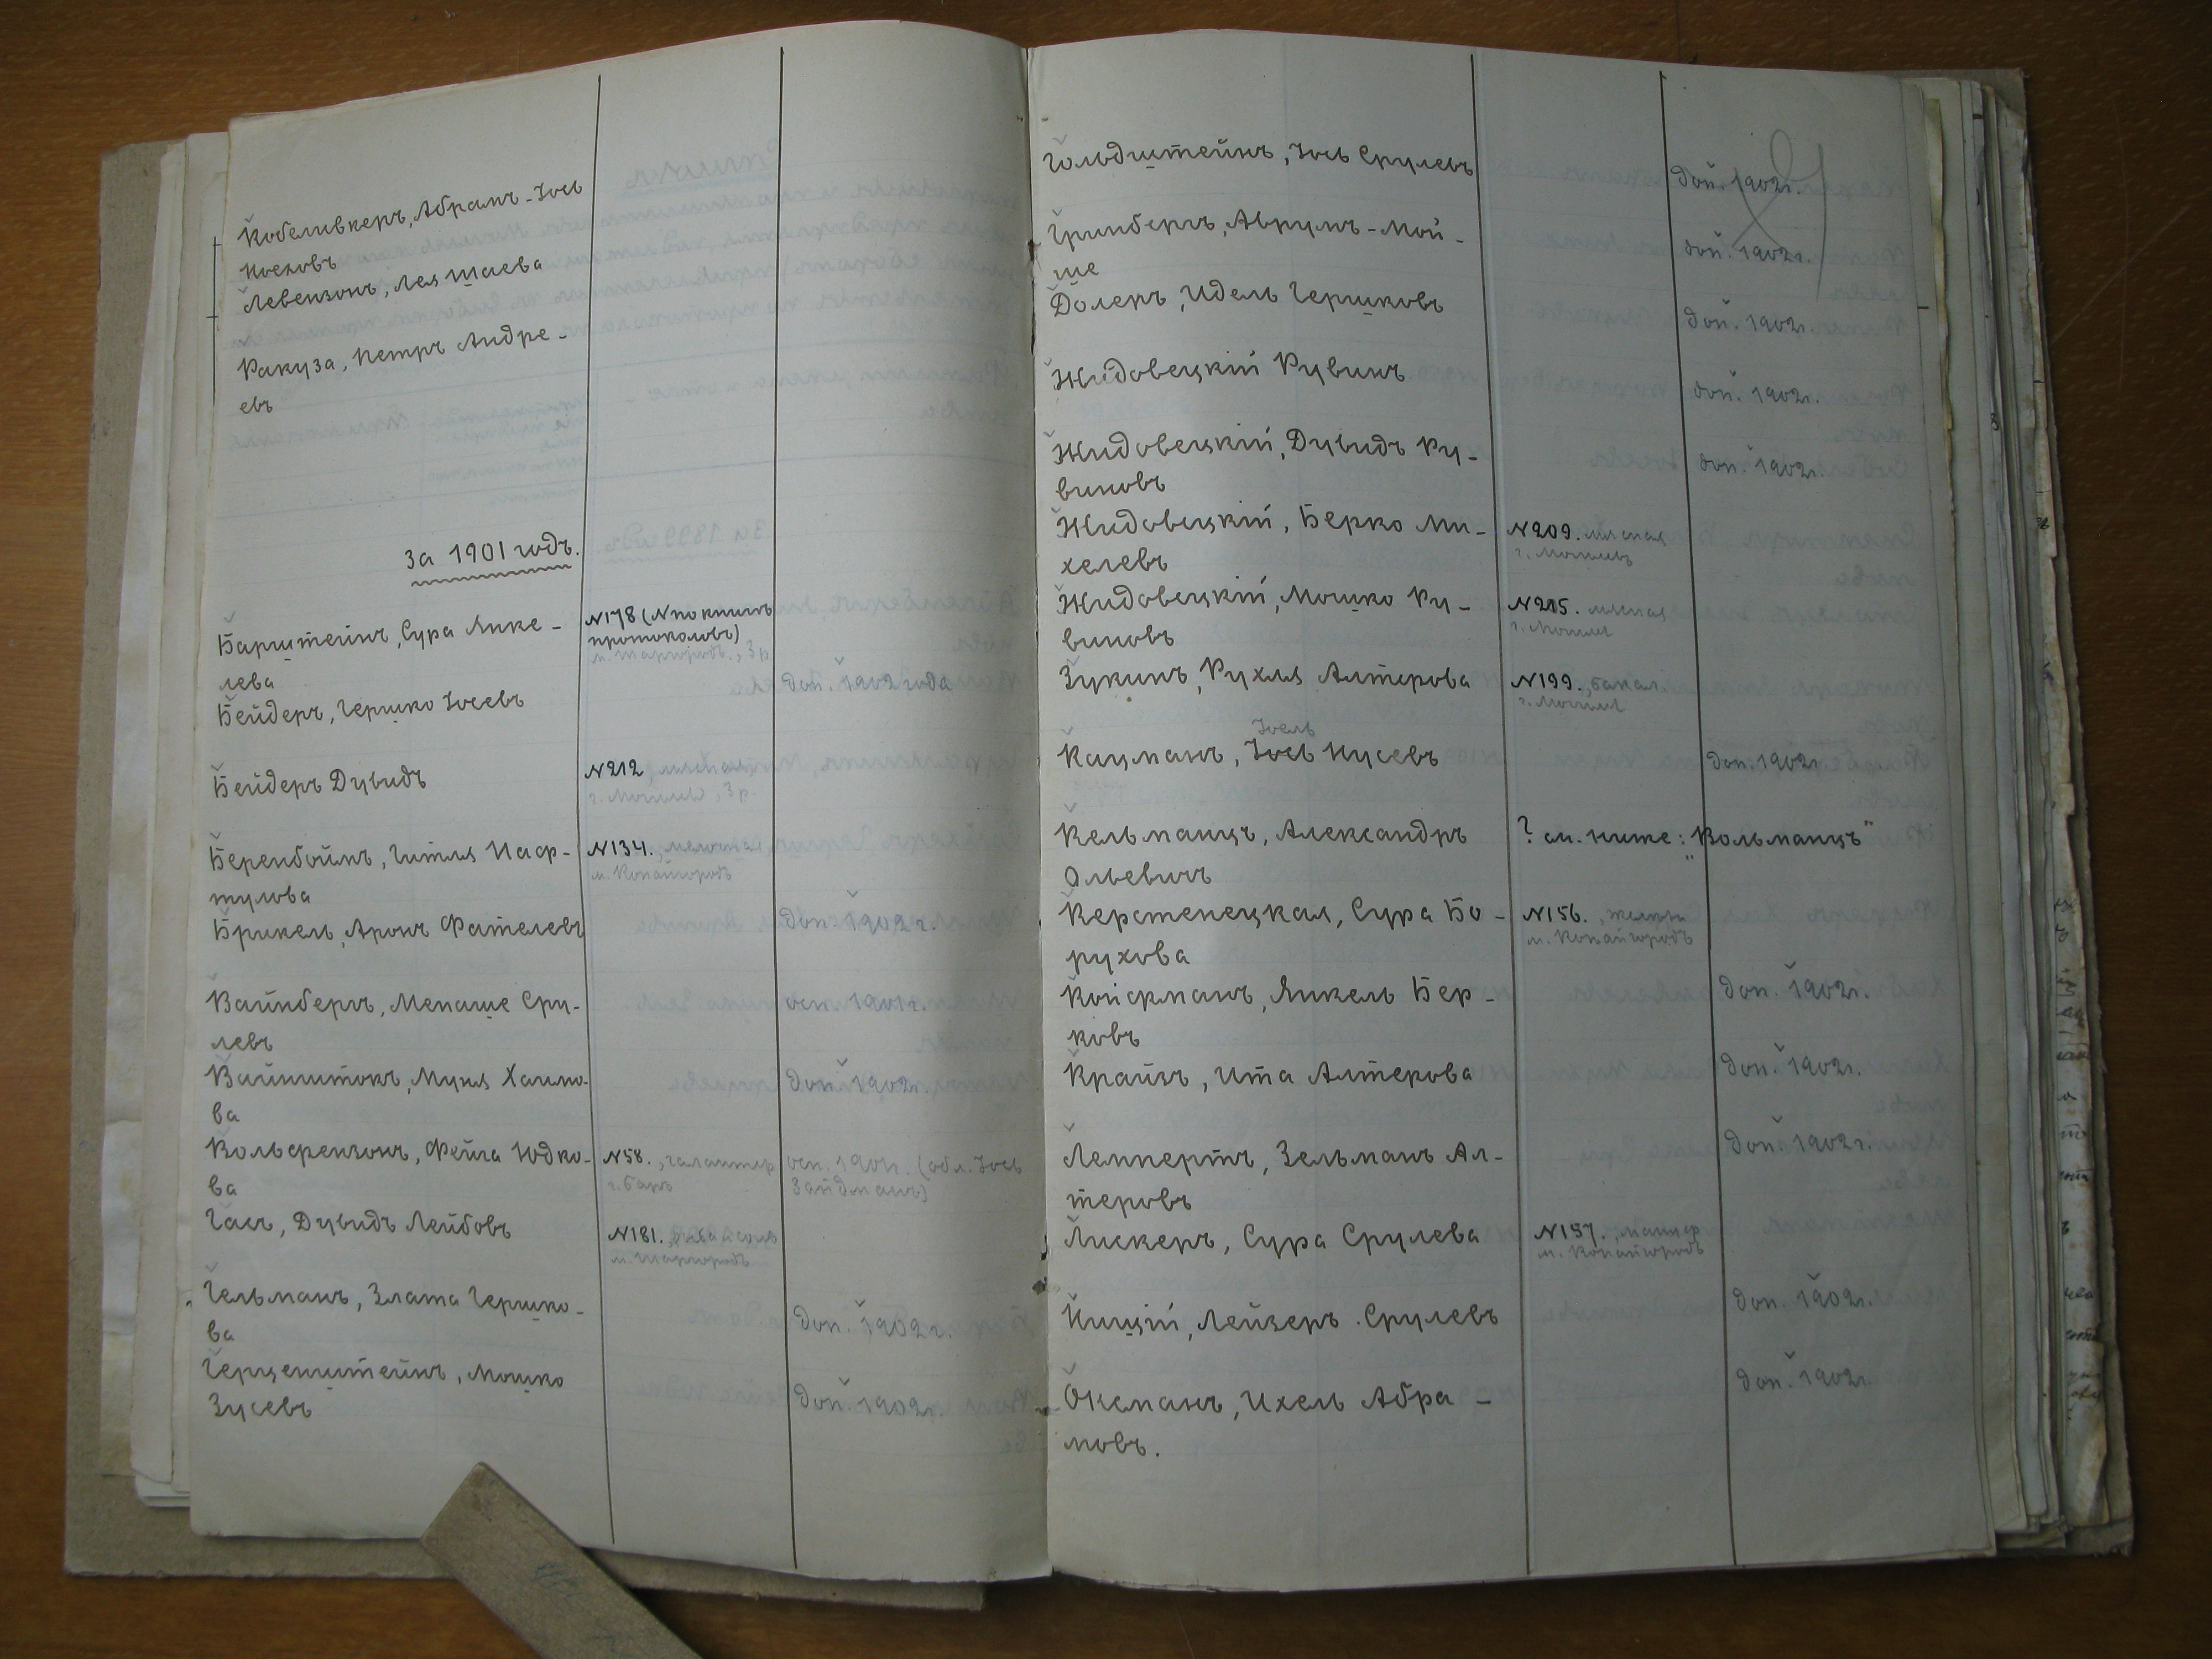 Кобеливкеръ, Абрамъ-Іось
Носковъ
Левензонъ, Лея Шаева
Ракуза, Петръ Андре-
евъ
За 1901 годъ.
Барштейнъ, Сура Янке-
лева
№178 (№ по книгѣ
протоколовъ)
м. Шаргородъ, 3 р.
Бейдеръ, Гершко Іосевъ
доп. 1902 года
Бейдеръ Дувидъ
№212
г. Могилев, 3 р.
Беренбоймъ, Гитля Наф-
тулова
№134. мелочная
м. Копайгородъ
Брикель, Аронъ Фателевъ
доп. 1902 г.
Вайнбергъ, Менаше Сру-
левъ
осн. 1901 г.
Вайнштокъ, Муня Хаимо-
ва
доп. 1902 г.
Вольфензонъ, Фейга Юдко-
ва
№58., галантер
г. Баръ
осн. 1901 г. (обл. Іось
Зайдманъ)
Гасъ, Дувидъ Лейбовъ
№181.
м. Шаргородъ
Гельманъ, Злата Гершко-
ва
доп. 1902 г.
Герценштейнъ, Мошко
Зусевъ
доп. 1902 г.
Гольдштейнъ, Іось Срулевъ
доп. 1902 г.
Гринбергъ, Аврумъ-Мой-
ше
доп. 1902 г.
Долеръ, Идель Гершковъ
доп. 1902 г.
Жидовецкій Рувинъ
доп. 1902 г.
Жидовецкій, Дувидъ Ру-
виновъ
доп. 1902 г.
Жидовецкій, Берко Ми-
хелевъ
№209. мясная
г. Могилевъ
Жидовецкій, Мошко Ру-
виновъ
№215. мясная
г. Могилев
Зукинъ, Рухля Алтерова
№199., бакал.
г. Могилев
Іоель
Кацманъ, Іось Нусевъ
доп. 1902 г.
Кельманцъ, Александръ
Ольевичъ
? см. ниже: „Вольманцъ"
Керстенецкая, Сура Бо-
рухова
№156.
м. Копайгородъ
Койфманъ, Янкель Бер-
ковъ
доп. 1902 г.
Крайзъ, Ита Алтерова
доп. 1902 г.
Лемпертъ, Зельманъ Ал-
теровъ
доп. 1902 г.
Лискеръ, Сура Срулева
№157., мануф
м. Копайгородъ
Ницкій, Лейзеръ Срулевъ
доп. 1902 г.
Оксманъ, Ихель Абра-
мовъ.
доп. 1902 г.